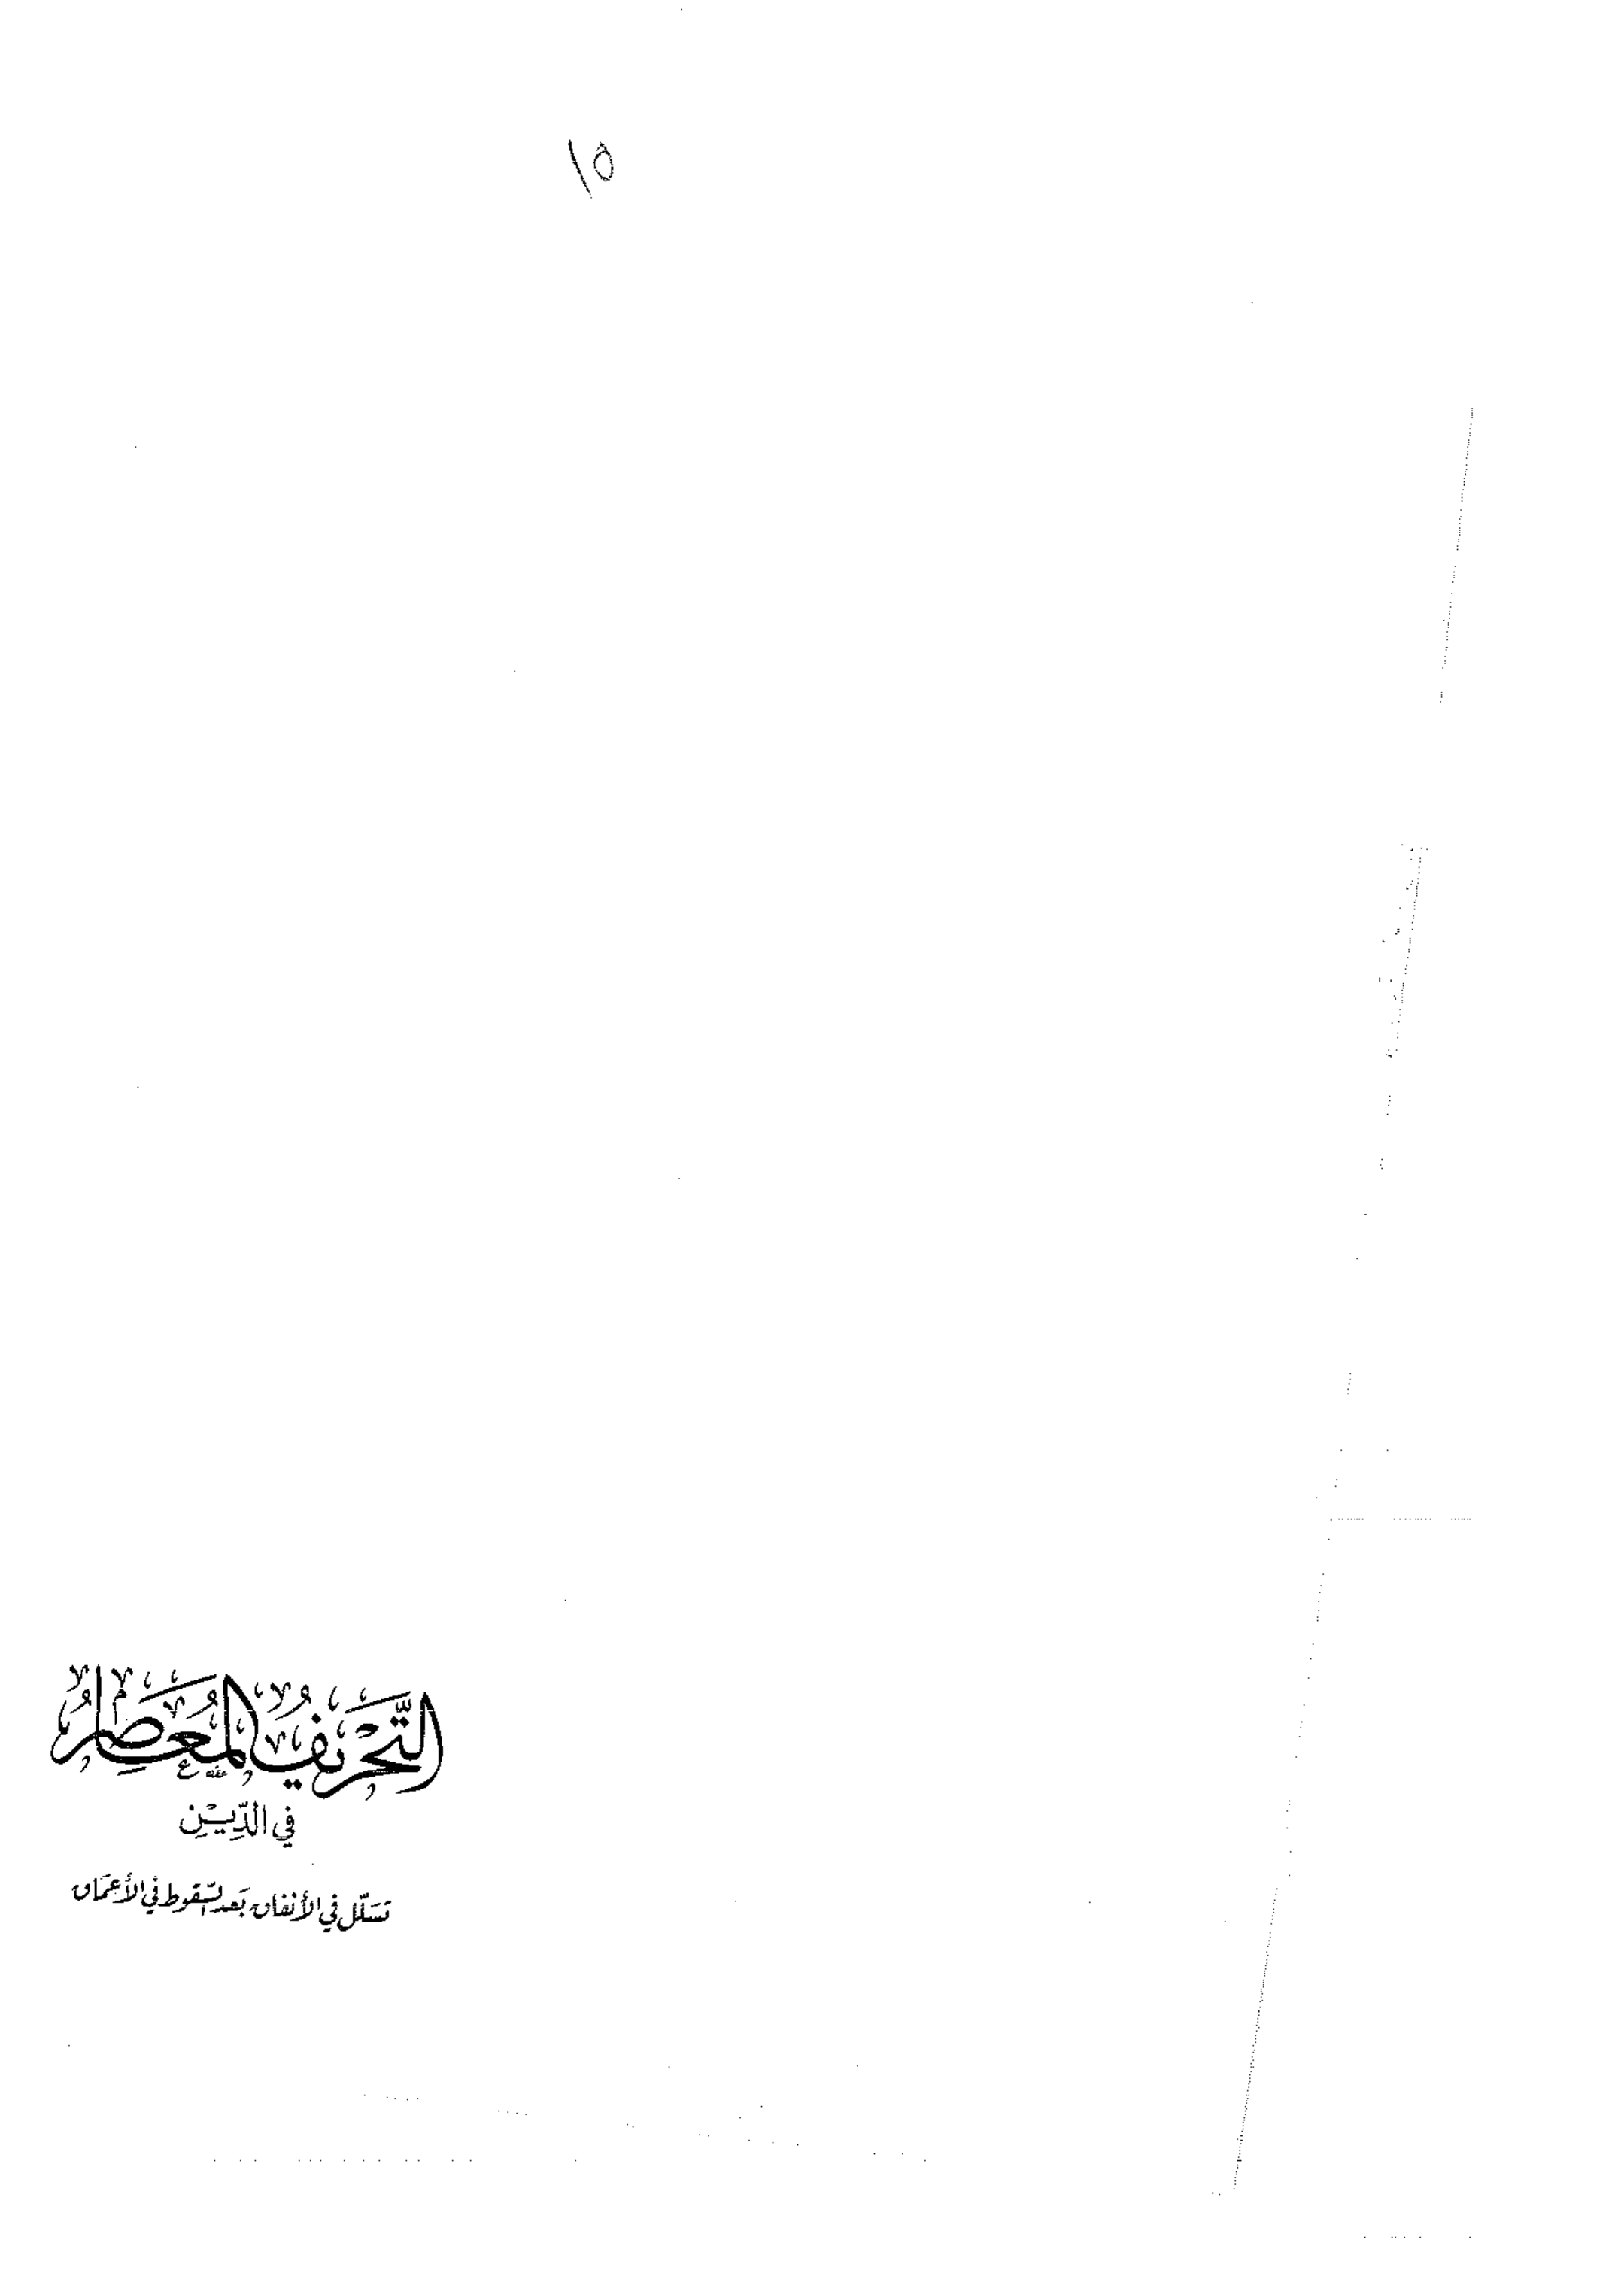 ١٥
التَّحْرِيفُ المُعَاصِرُ
في الدِّيْنِ
تسَلّل في الأنفاق بَعد السّقوط في الأعمَاق